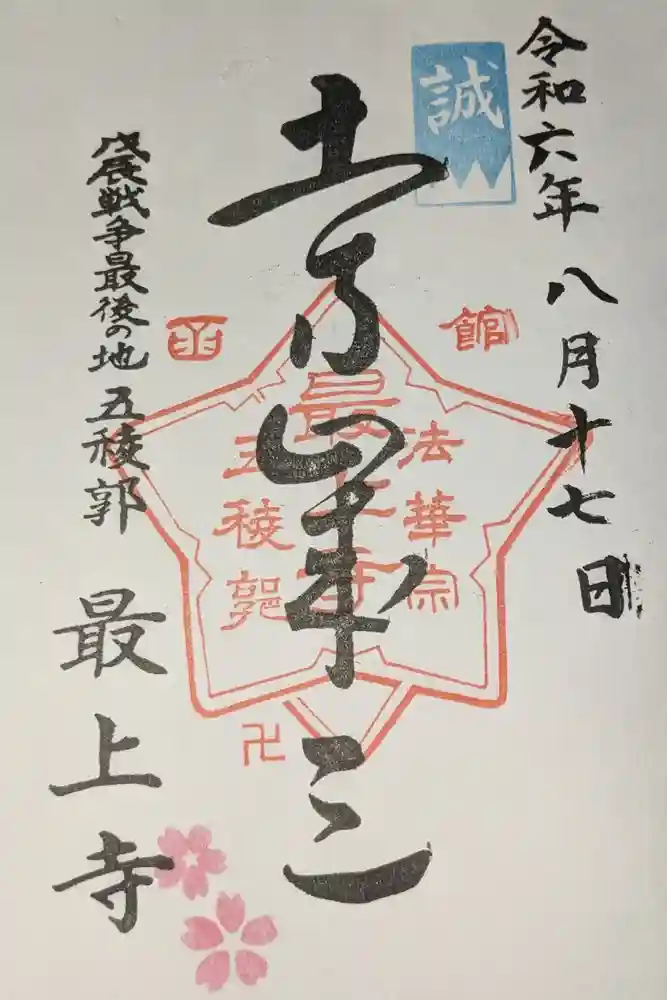 令和六年 八月十七日
誠
土方歳三
函館
法華宗
最上寺
五稜郭
卍
戊辰戦争最後の地 五稜郭
最上寺